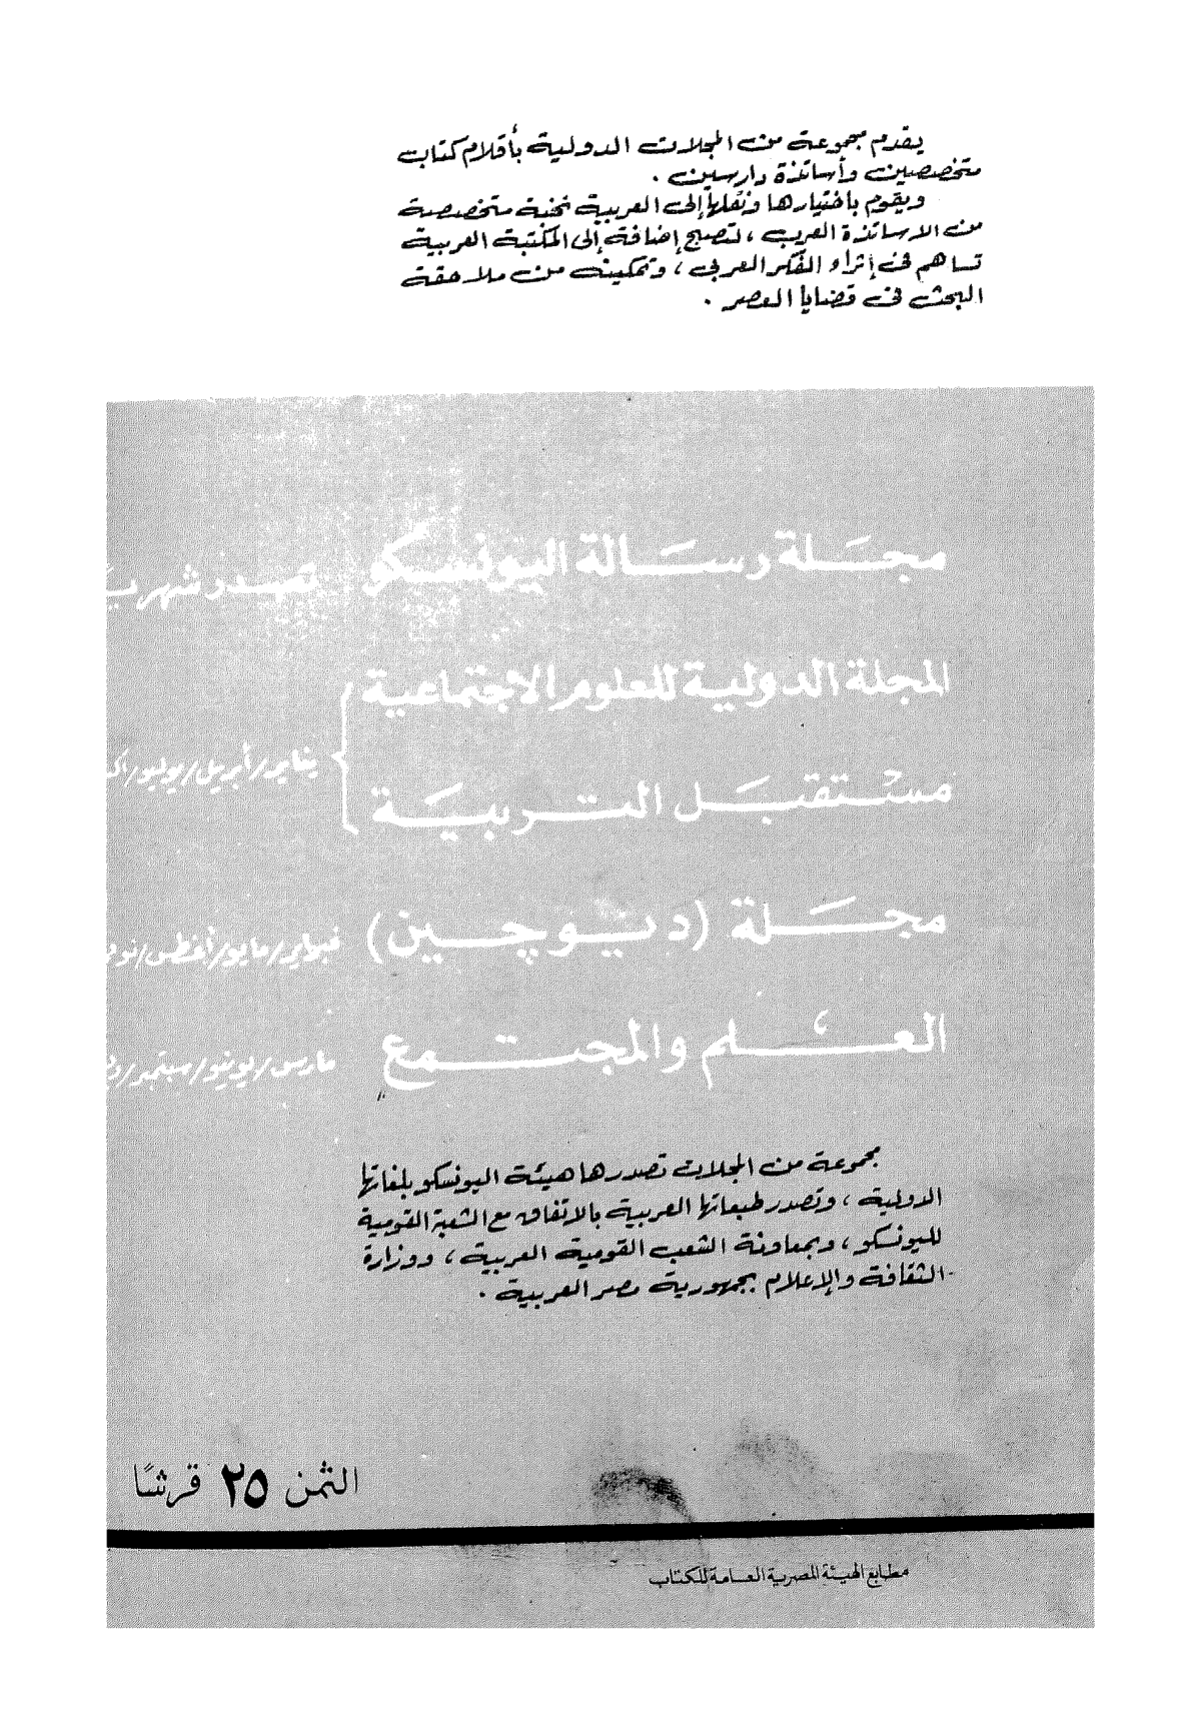 يقدم مجموعة من المجلات الدولية بأقلام كتاب
متخصصين وأساتذة دارسين .
ويقوم باختيارها ونقلها إلى العربية نخبة متخصصة
من الاساتذة العرب ، لتصبح إضافة إلى المكتبة العربية
تساهم فى إثراء الفكر العربى ، وتمكينه من ملاحقة
البحث فى قضايا العصر .
مجلة رسالة اليونسكو تصدر شهريـ
المجلة الدولية للعلوم الاجتماعية
يناير/أبريل/يوليو/اكـ
مستقبل التربية
مجلة (ديوچين) فبراير/مايو/أغطس/نوفـ
العلم والمجتمع مارس/يونيو/سبتمبر/د
مجموعة من المجلات تصدرها هيئة اليونسكو بلغاتها
الدولية ، وتصدر طبعاتها العربية بالاتفاق مع الشعبة القومية
لليونسكو ، وبمعاونة الشعب القومية العربية ، ووزارة
الثقافة والإعلام بجمهورية مصر العربية .
الثمن ٢٥ قرشًا
مطابع الهيئة المصرية العامة للكتاب